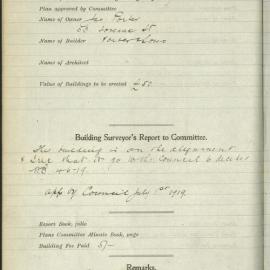 Plan approved by Committee
Name of Owner Geo Porter
St
Name of Builder Porter & Sons
Name of Architect
Value of Buildings to be erected £50
Building Surveyor's Report to Committee.
This building is on the alignment
& I see that it so to the Council to decide
4-6-19
app by Council July 1st 1919
Report Book, folio
Plans Committee Minute Book, page
Building Fee Paid 5/-
Remarks.